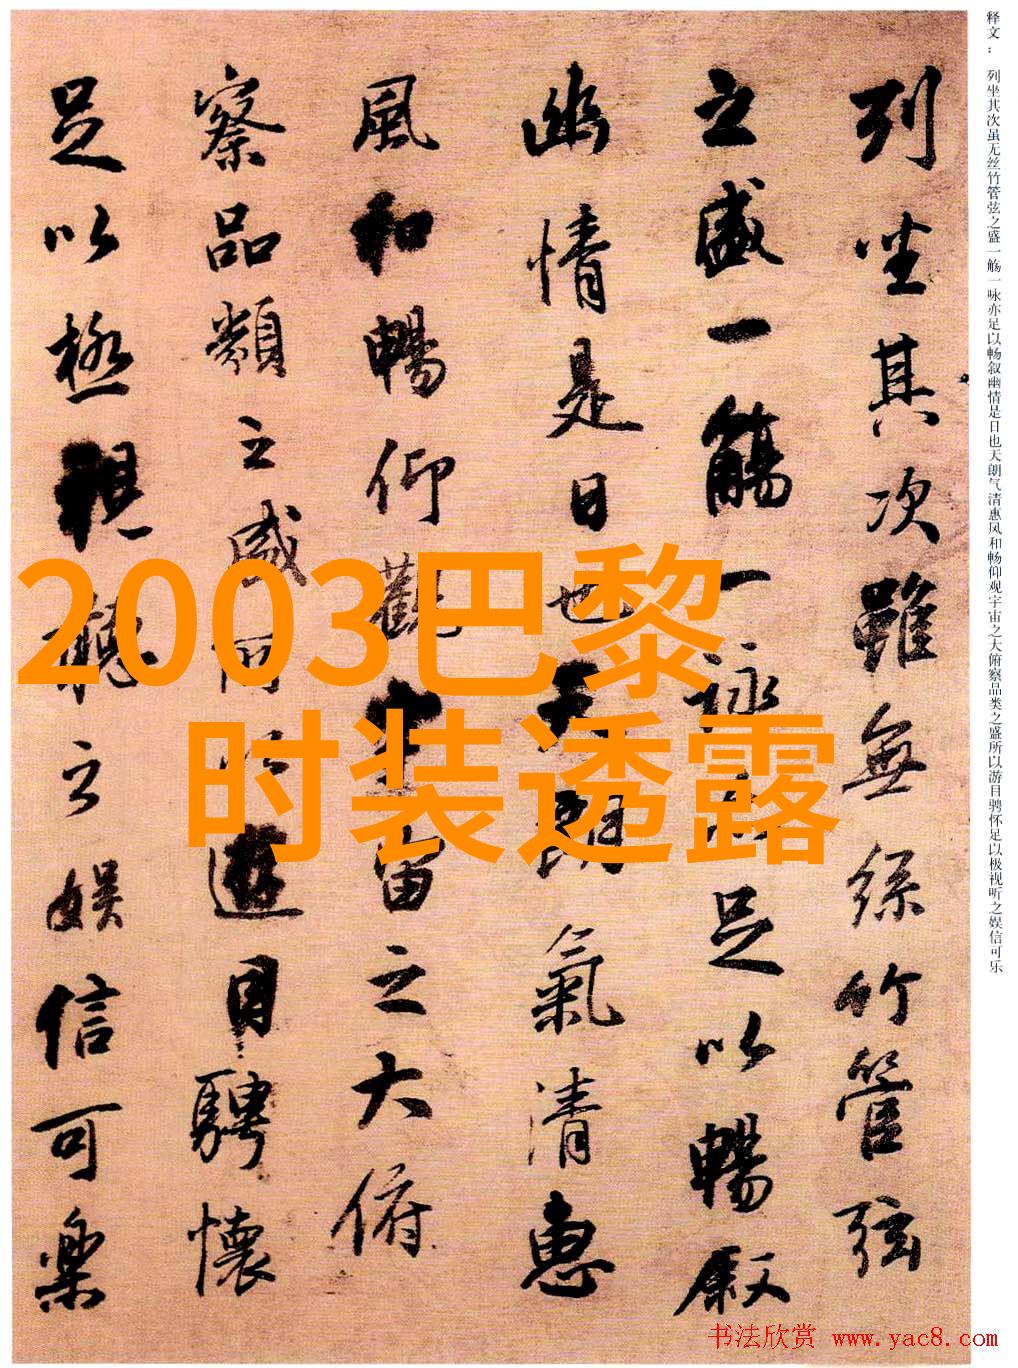 列坐其次雖無絲竹管弦
之盛一觴一詠亦足以暢叙
幽情是日也天朗氣清惠
風和暢仰觀宇宙之大俯
察品類之盛所以遊目騁懷
足以極視聽之娱信可樂
释文：列坐其次虽无丝竹管弦之盛一觞一咏亦足以畅叙幽情是日也天朗气清惠风和畅仰观宇宙之大俯察品类之盛所以游目骋怀足以极视听之娱信可乐
2003巴黎
时装透露
书法欣赏 www.yac8.com